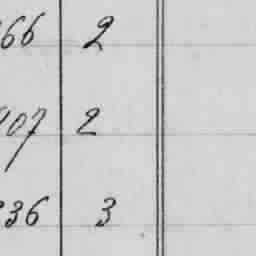 66 2
07 2
36 3